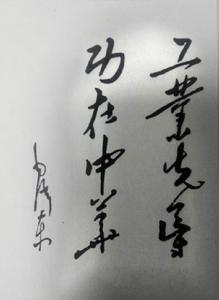 工業先鋒
功在中華
毛澤东